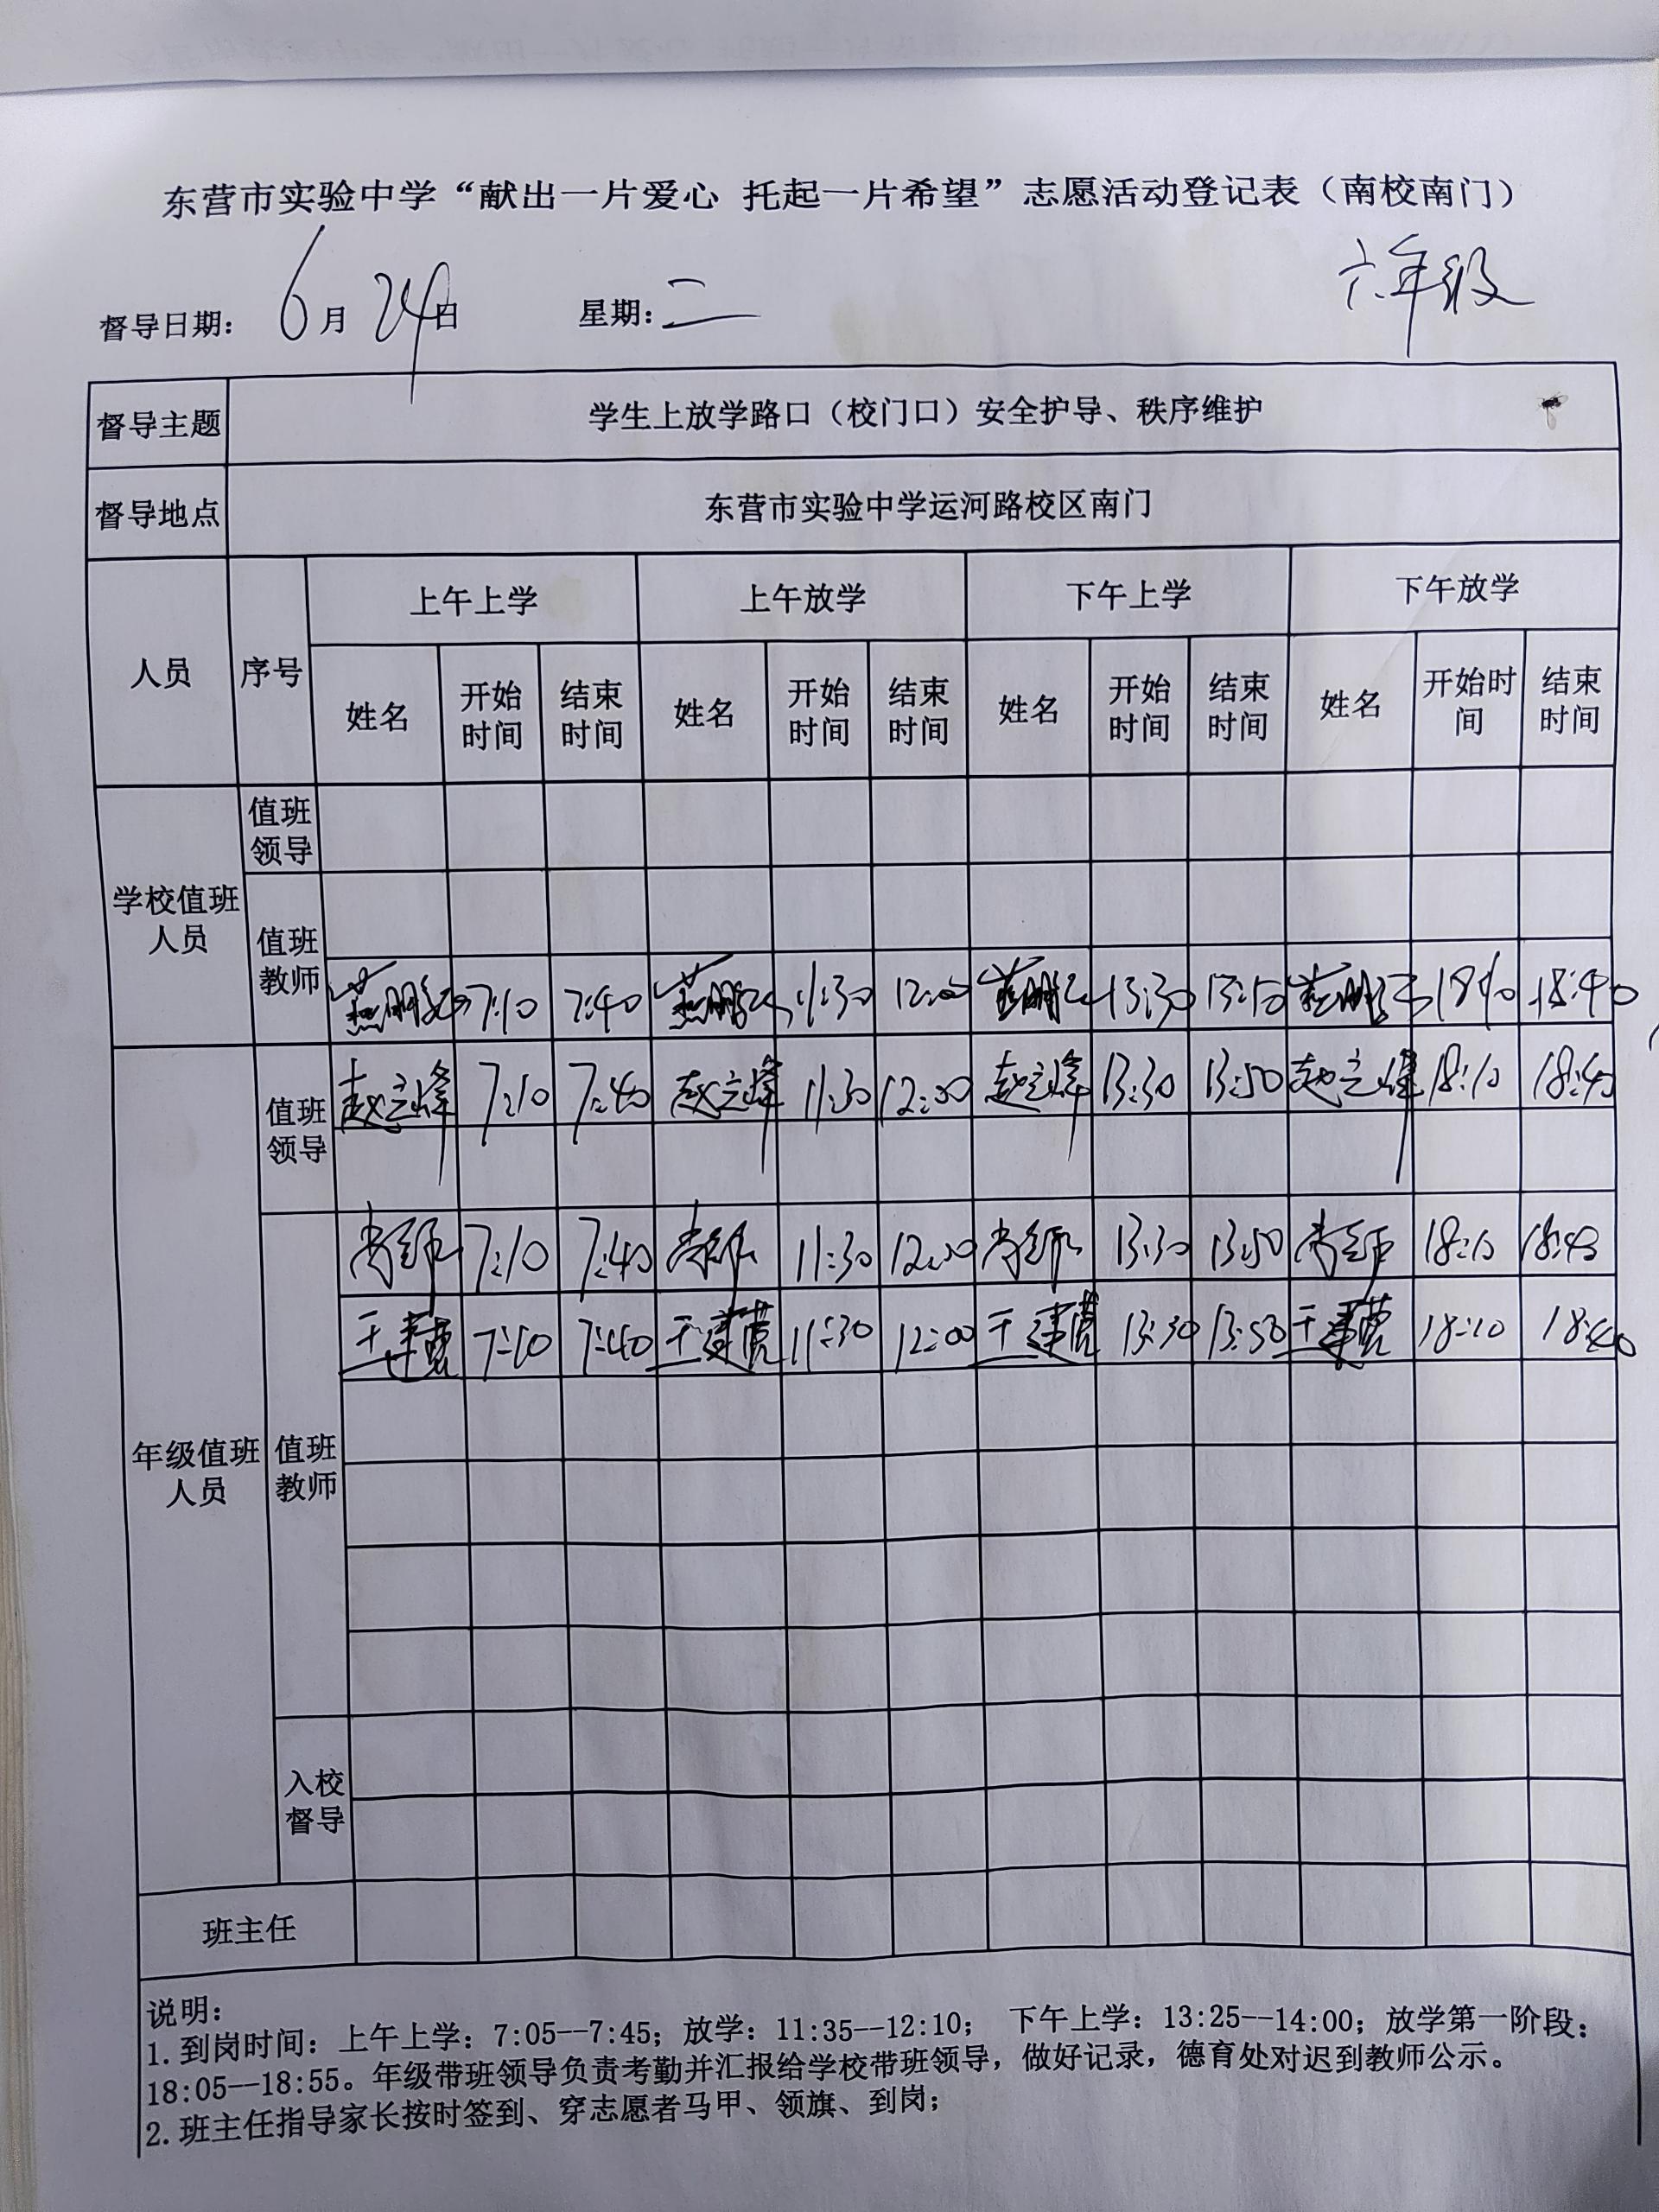 东营市实验中学“献出一片爱心 托起一片希望”志愿活动登记表（南校南门）
六年级
督导日期： 6月24日 星期：二
督导主题 学生上放学路口（校门口）安全护导、秩序维护
督导地点 东营市实验中学运河路校区南门
人员 序号 上午上学 上午放学 下午上学 下午放学
姓名 开始时间 结束时间 姓名 开始时间 结束时间 姓名 开始时间 结束时间 姓名 开始时间 结束时间
学校值班人员
值班领导
值班教师
7:10 7:40 11:30 12:00 13:30 18:40
年级值班人员
值班领导
赵立峰 7:10 7:40 赵立峰 11:30 12:00 赵立峰 13:30 13:50 赵立峰 18:10 18:40
值班教师
7:10 7:40 11:30 12:00 13:30 13:50 18:10 18:40
王建虎 7:10 7:40 王建虎 11:30 12:00 王建虎 13:30 13:50 王建虎 18:10 18:40
入校督导
班主任
说明：
1.到岗时间：上午上学：7:05--7:45；放学：11:35--12:10； 下午上学：13:25--14:00；放学第一阶段：
18:05--18:55。年级带班领导负责考勤并汇报给学校带班领导，做好记录，德育处对迟到教师公示。
2.班主任指导家长按时签到、穿志愿者马甲、领旗、到岗；